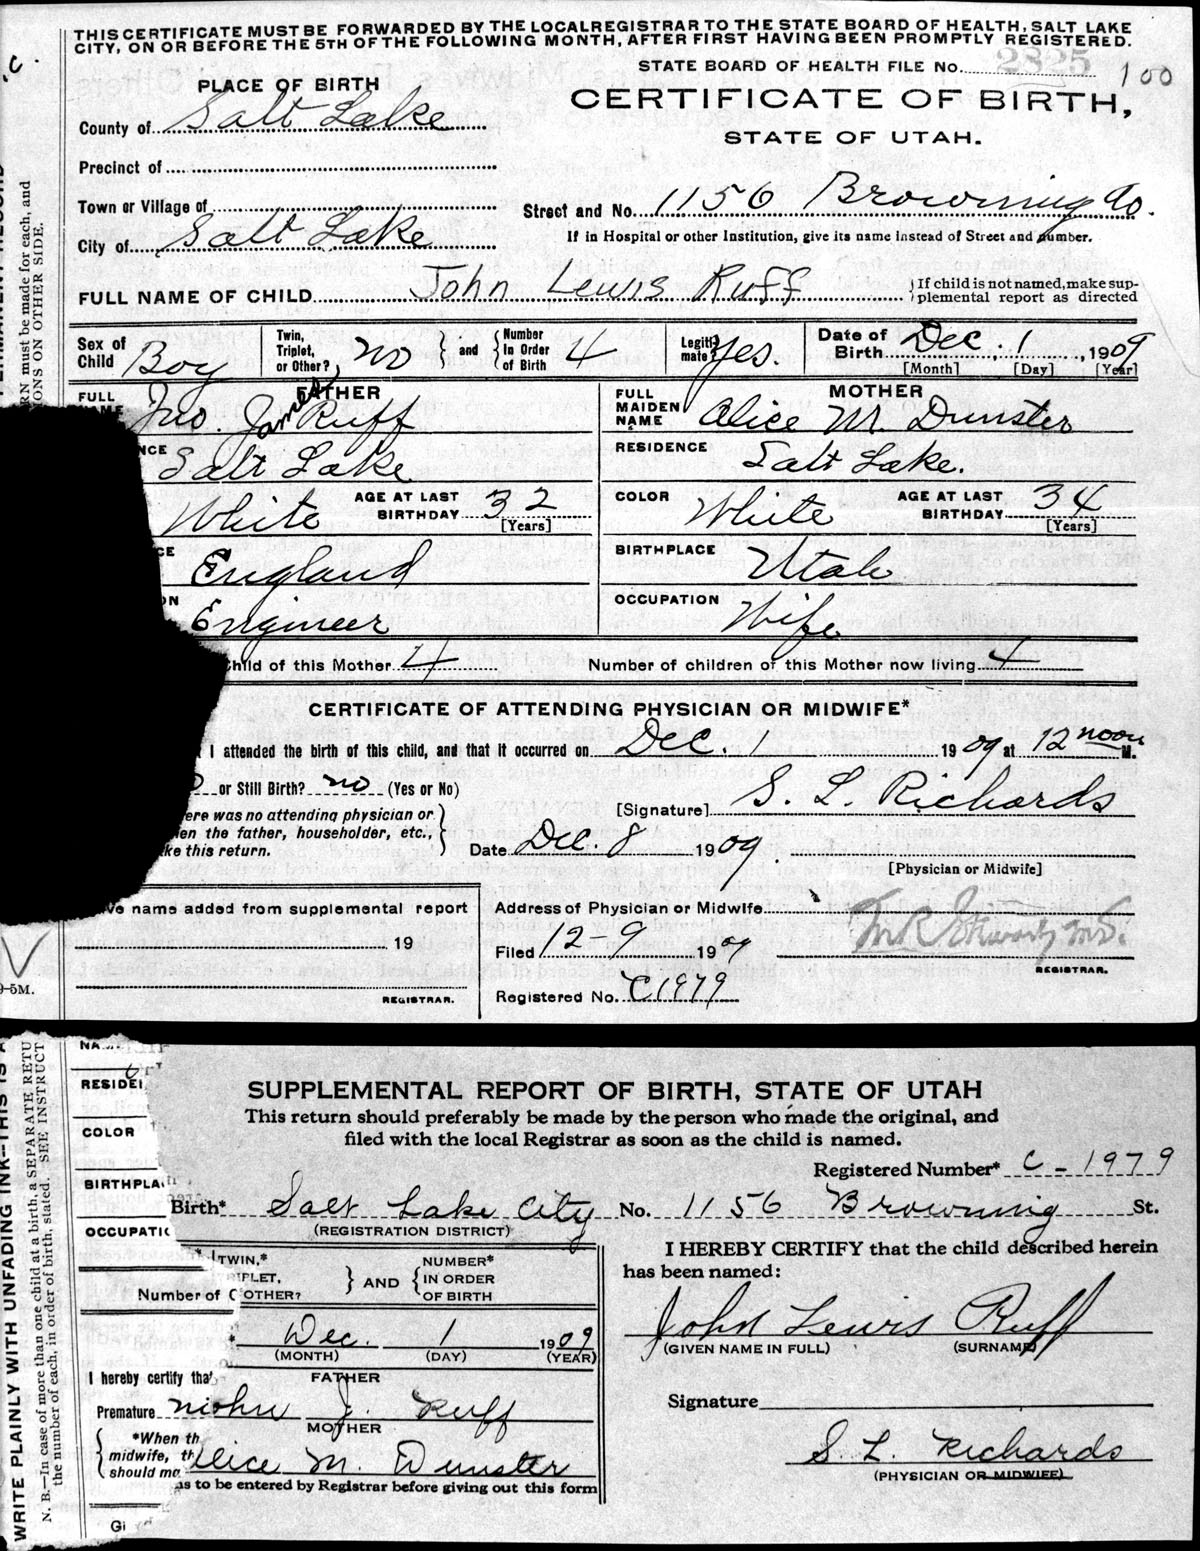 THIS CERTIFICATE MUST BE FORWARDED BY THE LOCAL REGISTRAR TO THE STATE BOARD OF HEALTH, SALT LAKE
CITY, ON OR BEFORE THE 5TH OF THE FOLLOWING MONTH, AFTER FIRST HAVING BEEN PROMPTLY REGISTERED.
STATE BOARD OF HEALTH FILE No. 2825 100
PLACE OF BIRTH
CERTIFICATE OF BIRTH,
STATE OF UTAH.
County of Salt Lake
Precinct of
Town or Village of
Street and No. 1156 Browning
City of Salt Lake
If in Hospital or other Institution, give its name instead of Street and number.
FULL NAME OF CHILD John Lewis Ruff
If child is not named, make sup-
plemental report as directed
Sex of Child Boy
Twin, Triplet, or Other? no and Number In Order of Birth 4
Legiti- mate? Yes.
Date of Birth Dec. 1, 1909
[Month] [Day] [Year]
FATHER
FULL Jno. James Ruff
MOTHER
FULL MAIDEN NAME Alice M. Dunster
Salt Lake
RESIDENCE Salt Lake.
White AGE AT LAST BIRTHDAY 32 [Years]
COLOR White AGE AT LAST BIRTHDAY 34 [Years]
England
BIRTHPLACE Utah
Engineer
OCCUPATION Wife
Child of this Mother 4 Number of children of this Mother now living 4
CERTIFICATE OF ATTENDING PHYSICIAN OR MIDWIFE*
I attended the birth of this child, and that it occurred on Dec. 1 1909 at 12 noon M.
or Still Birth? no (Yes or No)
[Signature] S. L. Richards
ere was no attending physician or
en the father, householder, etc.,
ke this return.
Date Dec. 8 1909.
[Physician or Midwife]
ve name added from supplemental report
19
REGISTRAR.
Address of Physician or Midwife
Filed 12-9 1909
REGISTRAR.
Registered No. C1979
9-5M.
SUPPLEMENTAL REPORT OF BIRTH, STATE OF UTAH
This return should preferably be made by the person who made the original, and
filed with the local Registrar as soon as the child is named.
Registered Number* C-1979
Birth* Salt Lake City No. 1156 Browning St.
(REGISTRATION DISTRICT)
TWIN,* TRIPLET, OTHER? AND NUMBER* IN ORDER OF BIRTH
I HEREBY CERTIFY that the child described herein
has been named:
John Lewis Ruff
(GIVEN NAME IN FULL) (SURNAME)
Dec. 1 1909
(MONTH) (DAY) (YEAR)
FATHER
J. Ruff
MOTHER
Alice M. Dunster
as to be entered by Registrar before giving out this form
Signature
S. L. Richards
(PHYSICIAN OR MIDWIFE)
RESIDE
COLOR
BIRTHPLA
OCCUPATIC
Number of C
I hereby certify tha
Premature
*When th
midwife, th
should ma
WRITE PLAINLY WITH UNFADING INK—THIS IS A
N. B.—In case of more than one child at a birth, a SEPARATE RETU
the number of each, in order of birth, stated. SEE INSTRUCT
RN must be made for each, and
IONS ON OTHER SIDE.